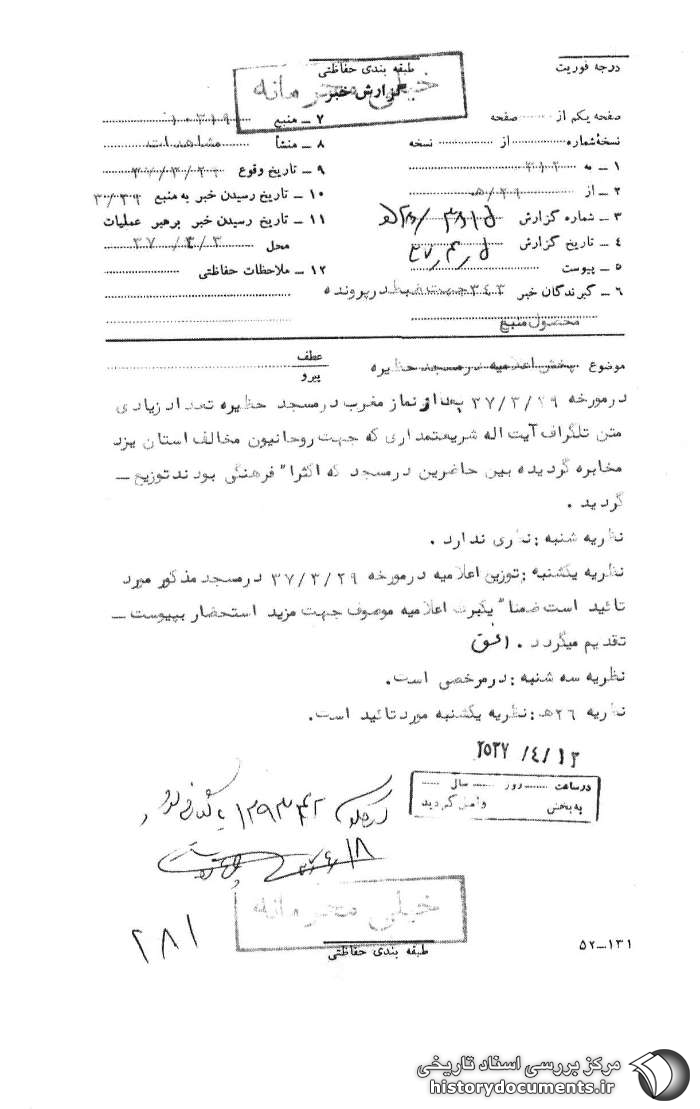 درجه فوریت
طبقه بندی حفاظتی
خیلی محرمانه
گزارش خبر
صفحه یکم از صفحه
نسخه شماره از نسخه
۱ ــ به ۳۱۲
۲ ــ از
۳ ــ شماره گزارش
۴ ــ تاریخ گزارش
۵ ــ پیوست
۶ ــ گیرندگان خبر ۳۴۳ جهت ضبط در پرونده
محصول منبع
۷ ــ منبع
۸ ــ منشأ مشاهدات
۹ ــ تاریخ وقوع
۱۰ ــ تاریخ رسیدن خبر به منبع
۱۱ ــ تاریخ رسیدن خبر برهبر عملیات
محل ۳۷/۴/۳
۱۲ ــ ملاحظات حفاظتی
موضوع پخش اعلامیه در مسجد حظیره
عطف
پیرو
در مورخه ۳۷/۳/۲۹ بعد از نماز مغرب در مسجد حظیره تعداد زیادی
متن تلگراف آیت اله شریعتمداری که جهت روحانیون مخالف استان یزد
مخابره گردیده بین حاضرین در مسجد که اکثرا" فرهنگی بودند توزیع ــ
گردید .
نظریه شنبه : نظری ندارد .
نظریه یکشنبه : توزیع اعلامیه در مورخه ۳۷/۳/۲۹ در مسجد مذکور مورد
تائید است ضمنا" یکبرگ اعلامیه موصوف جهت مزید استحضار بپیوست ــ
تقدیم میگردد . افق
نظریه سه شنبه : در مرخصی است.
نظریه ۲۶هـ : نظریه یکشنبه مورد تائید است.
۲۵۳۷/۴/۱۲
در ساعت روز سال
به بخش واصل گردید
۲۸۱
خیلی محرمانه
طبقه بندی حفاظتی
۵۲ــ۱۳۱
مرکز بررسی اسناد تاریخی
historydocuments.ir